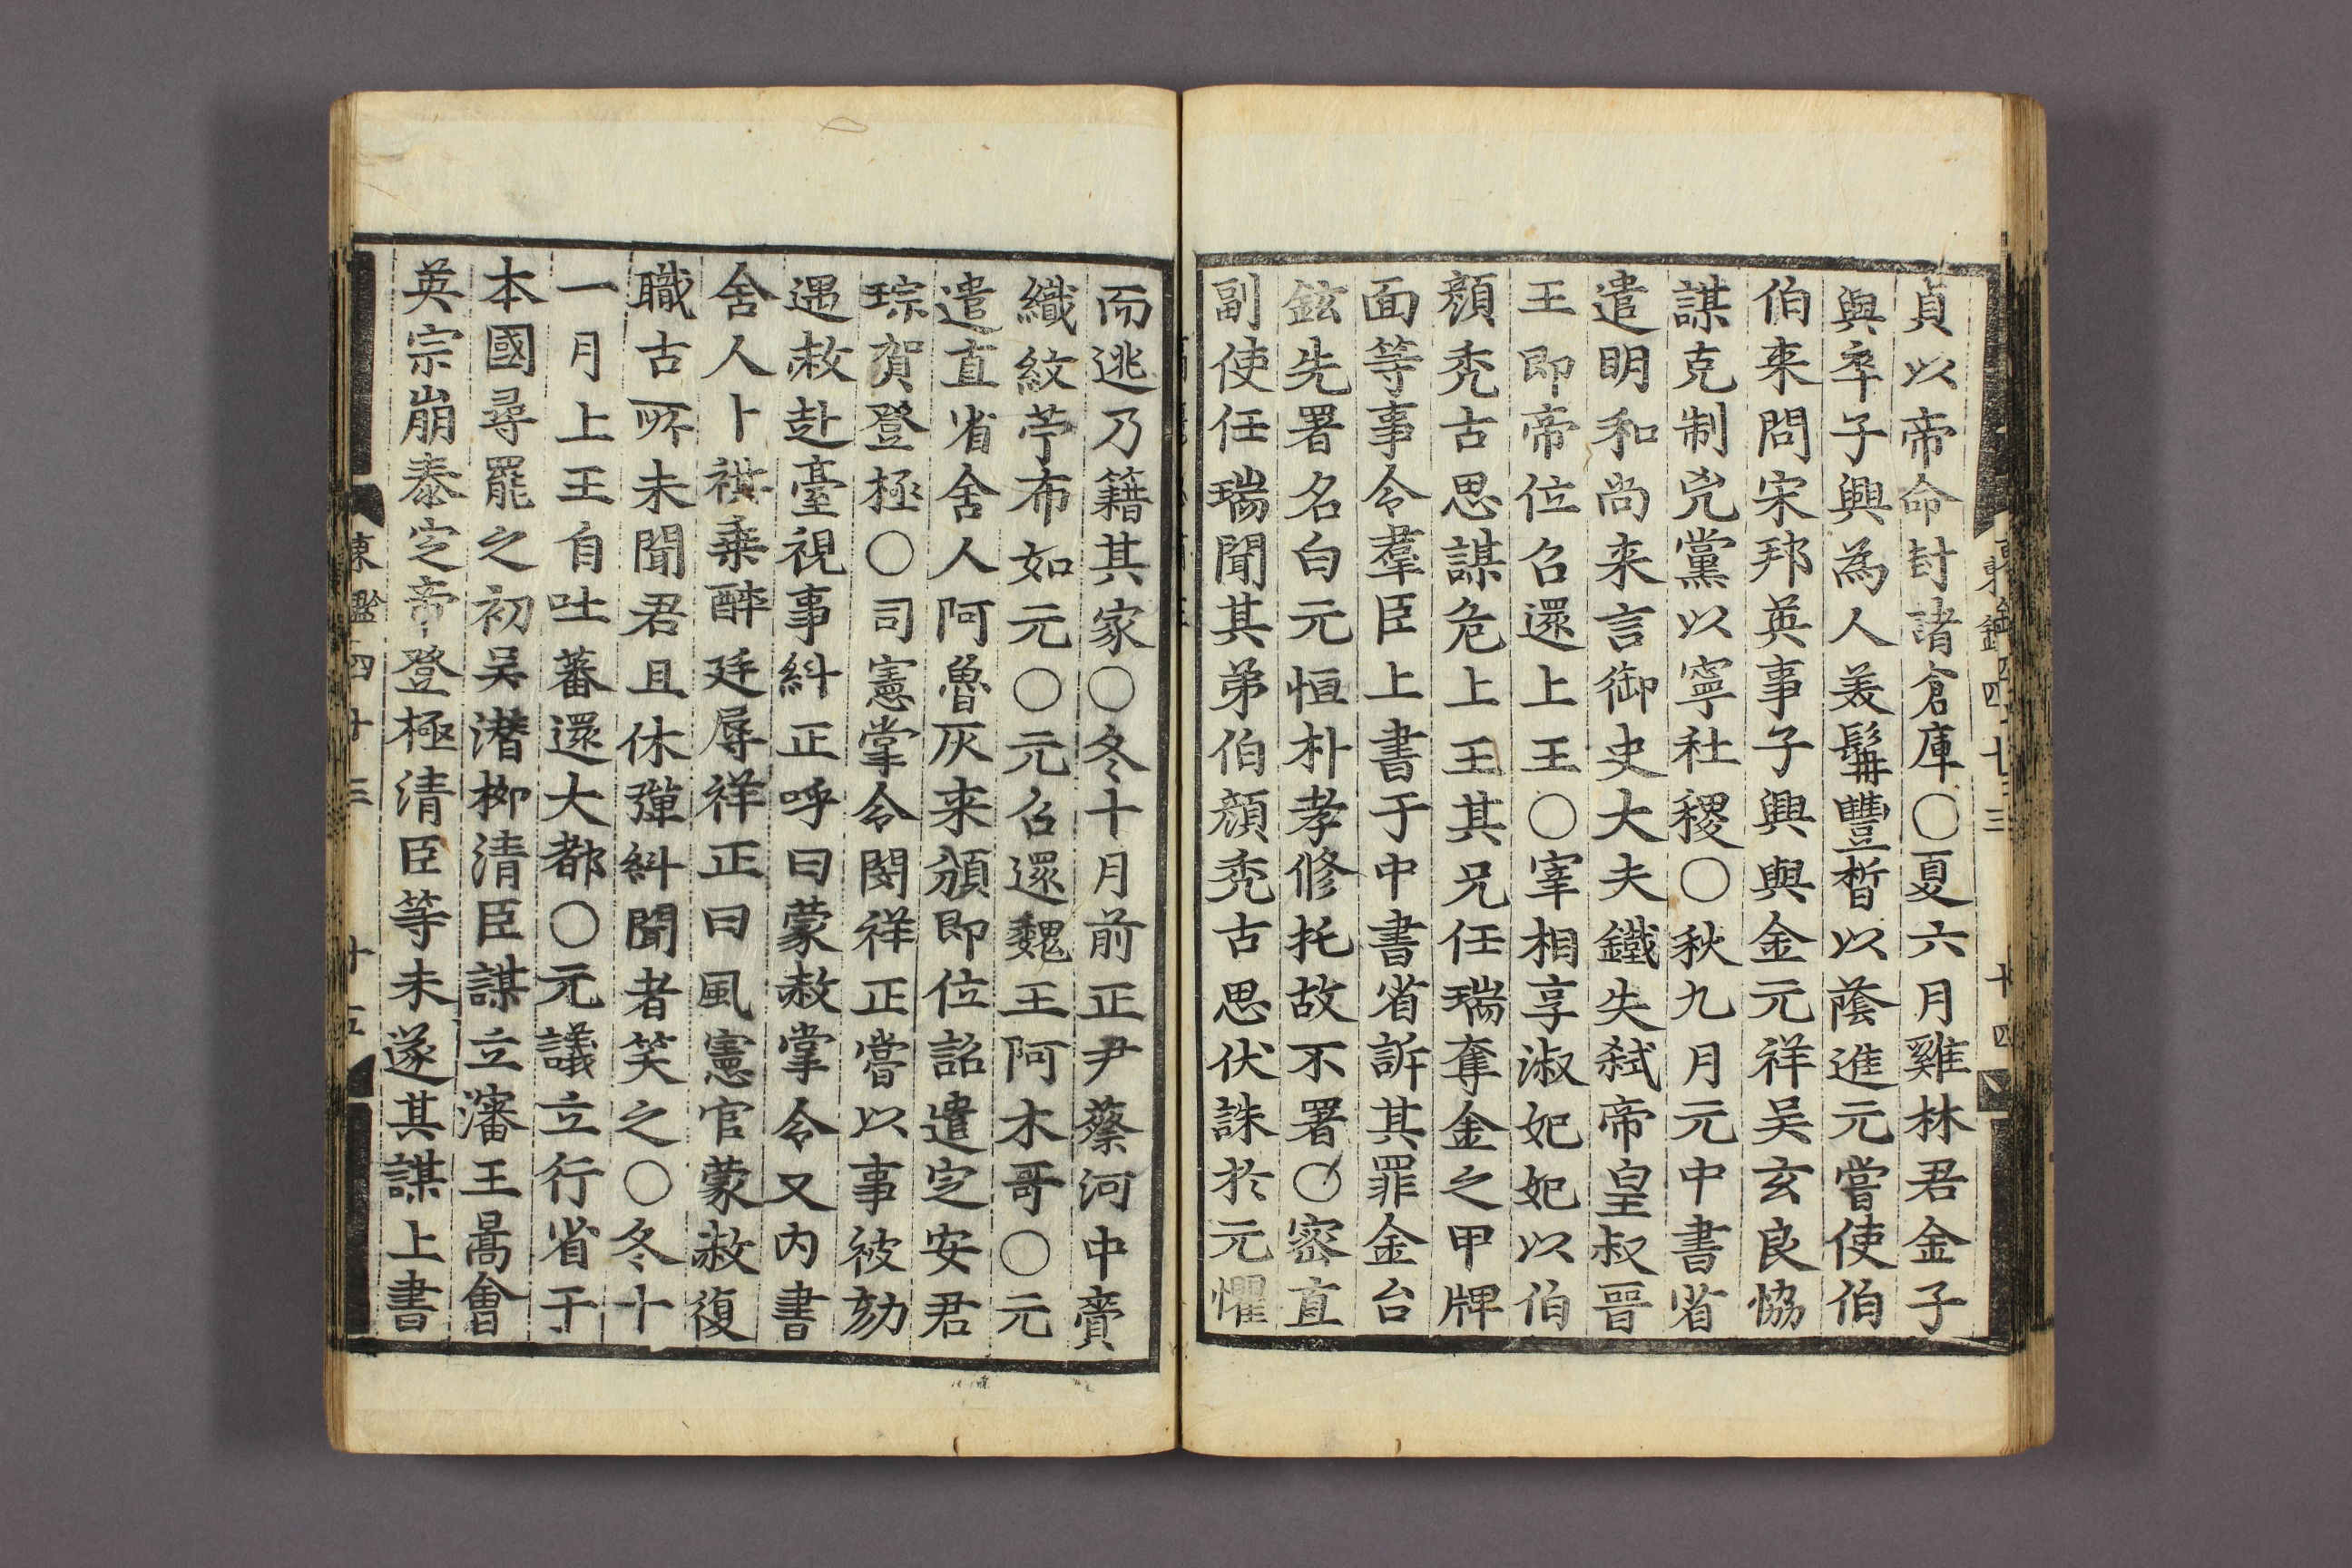 貞以帝命封諸倉庫○夏六月雞林君金子
興卒子興為人美髯豐晳以蔭進元嘗使伯
伯来問宋邦英事子興與金元祥吴玄良恊
謀克制兇黨以寧社稷○秋九月元中書省
遣明和尚来言御史大夫鐵失弑帝皇叔晉
王即帝位召還上王○宰相享淑妃妃以伯
顔禿古思謀危上王其兄任瑞奪金之甲牌
面等事令羣臣上書于中書省訴其罪金台
鉉先署名白元恒朴孝修托故不署○密直
副使任瑞聞其弟伯顔禿古思伏誅於元懼
東鑑四十三
十四
而逃乃籍其家○冬十月前正尹蔡河中賷
織紋苧布如元○元召還魏王阿木哥○元
遣直省舍人阿魯灰来頒即位詔遣定安君
琮賀登極○司憲掌令閔祥正嘗以事被劾
遇赦赴臺視事糾正呼曰蒙赦掌令又内書
舍人卜祺乗醉廷辱祥正曰風憲官蒙赦復
職古所未聞君且休彈糾聞者笑之○冬十
一月上王自吐蕃還大都○元議立行省于
本國尋罷之初吴潜栁清臣謀立瀋王暠會
英宗崩泰定帝登極清臣等未遂其謀上書
東鑑四十三
十五